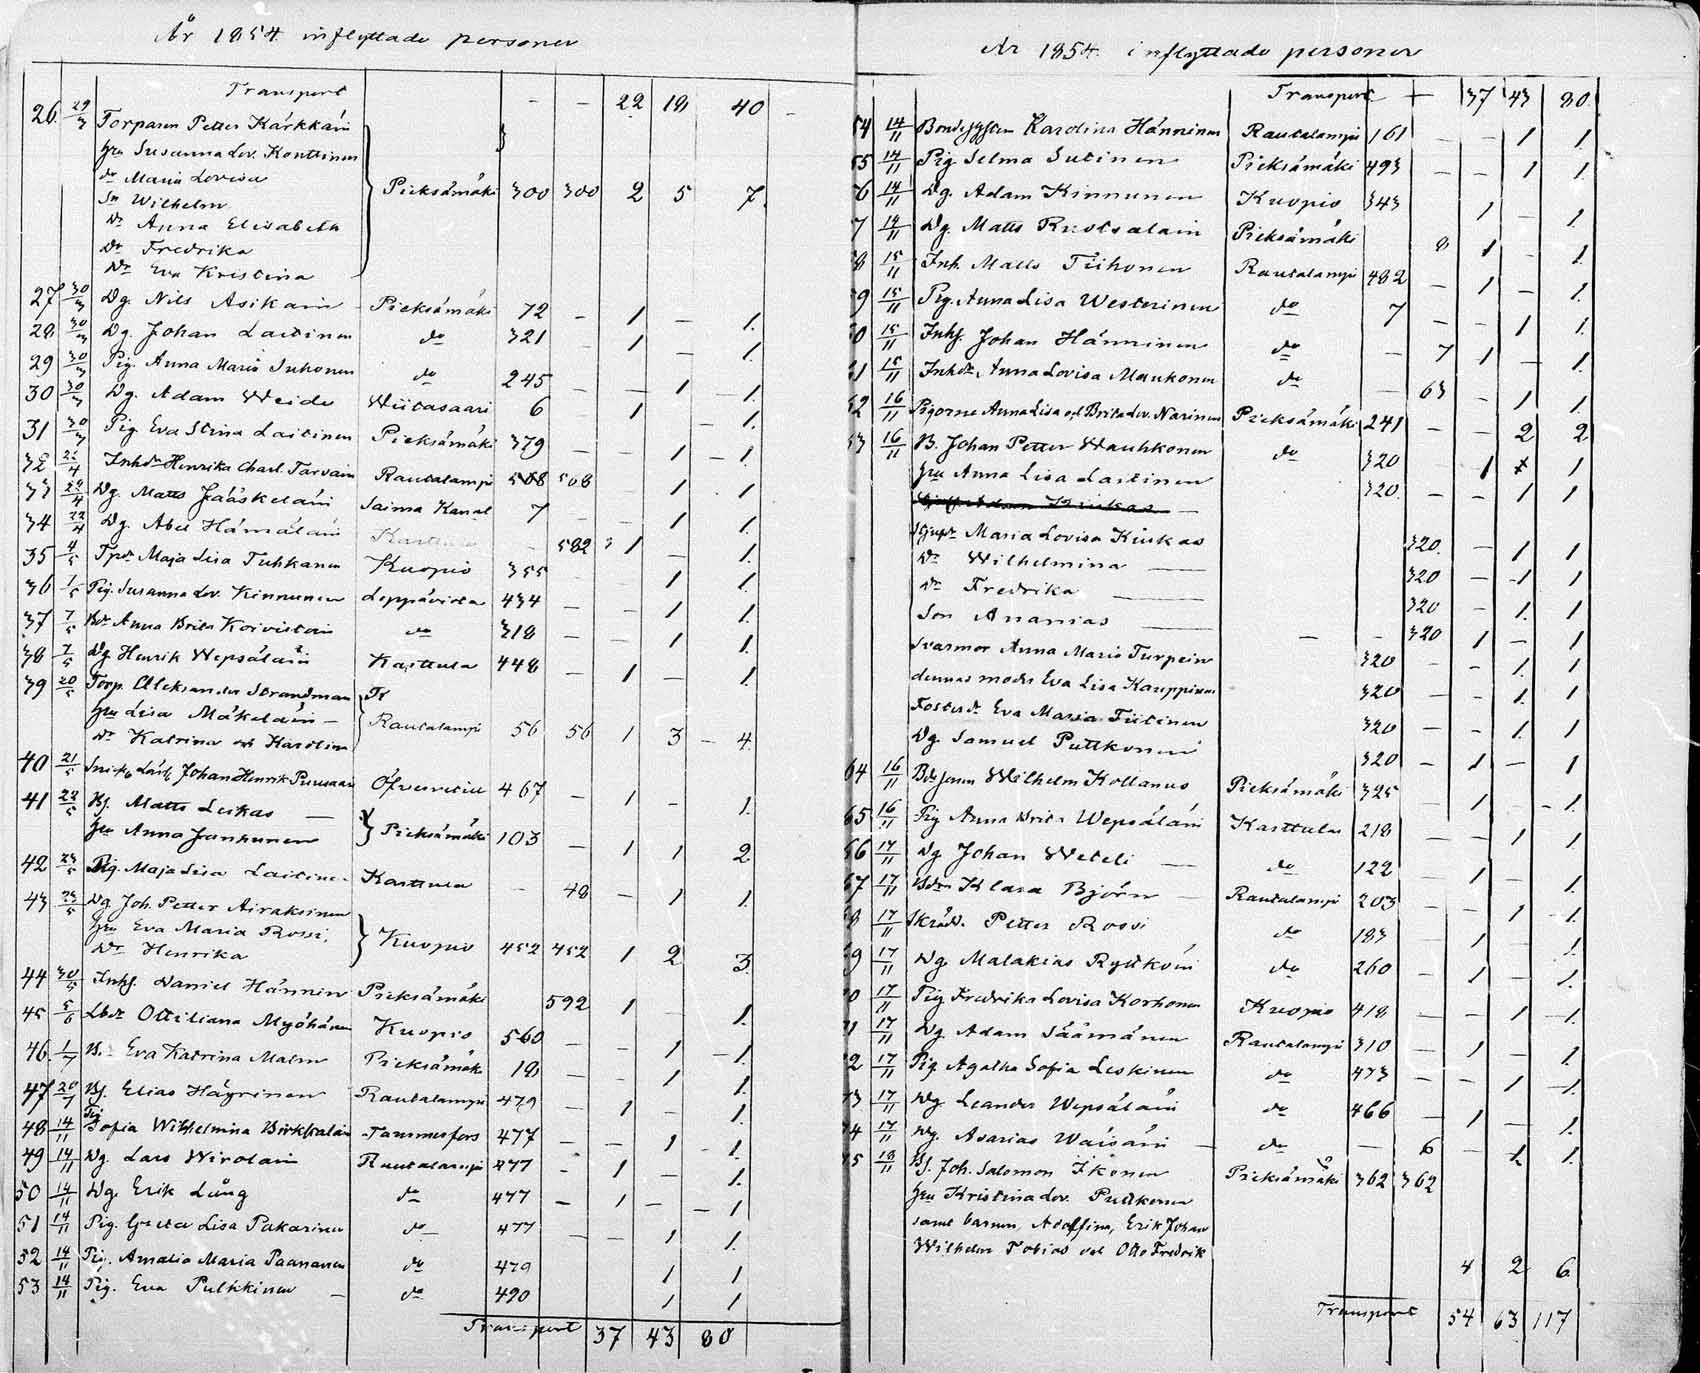 År 1854 inflyttade personer
Transport - - 22 18 40
26. 29/3 Torparen Petter Kärkkäin
Hru Susanna Lov. Konttinen
do Maria Lovisa
Sn Wilhelm Pieksämäki 300 300 2 5 7.
Dr Anna Elisabeth
Dr Fredrika
Dr Eva Kristina
27 30/3 Dg. Nils Asikain Pieksämäki 72 - 1 - 1.
28 30/3 Dg. Johan Laitinen do 321 - 1 - 1.
29 30/3 Pig. Anna Maria Suhonen do 245 - - 1 1.
30 30/3 Dg. Adam Weide Wiitasaari 6 - 1 - 1.
31 30/3 Pig. Eva Stina Laitinen Pieksämäki 379 - - 1 - 1.
32 22/4 Inhdr Henrika Charl. Tarvain Rautalampi 508 508 - 1 1
33 22/4 Dg. Matts Jääskeläin Saima Kanal 7 - - 1 1.
34 22/4 Dg. Abel Hämäläin Karttula - 582 1 - 1.
35 4/5 Tpdr Maja Lisa Tuhkanen Kuopio 355 - - 1 1.
36 1/5 Pig. Susanna Lov. Kinnunen Leppävirta 434 - - 1 1.
37 7/5 Bdr Anna Brita Koivistoin do 318 - - 1 1.
38 7/5 Dg Henrik Wepsäläin Karttula 448 - 1 - 1.
39 20/5 Torp. Aleksander Strandman
Hru Lisa Mäkeläin - Rautalampi 56 56 1 3 - 4.
Dr Katrina och Karolina
40 21/5 Johan Henrik Puusaari 467 - 1 - 1.
41 22/5 Bf. Matts Leskas -
Hru Anna Janhunen Pieksämäki 103 - 1 1 2
42 23/5 Pig. Maja Lisa Laitinen Karttula - 48 - 1 1.
43 23/5 Dg. Joh. Petter Airaksinen
Hru Eva Maria Rossi, Kuopio 452 452 1 2 3.
Dr Henrika
44 30/5 Inhs. Daniel Hännin Pieksämäki 592 1 - 1.
45 5/6 Ottiliana Myöhänen Kuopio 560 - - 1 - 1.
46 1/7 Eva Katrina Malm Pieksämäk 18 - - 1 1.
47 20/7 Bf. Elias Häyrinen Rautalampi 479 - 1 - 1.
48 14/11 Pig Sofia Wilhelmina Birkkalain Tammerfors 477 - - 1 1.
49 14/11 Dg. Lars Wirolain Rautalampi 477 - 1 - 1.
50 14/11 Dg. Erik Lång do 477 - 1 - - 1
51 14/11 Pig. Greta Lisa Pakarinen do 477 - - 1 1.
52 14/11 Pig. Amalia Maria Paananen do 479 1 1
53 14/11 Pig. Eva Pulkkinen - do 490 1 1
Transport 37 43 80
År 1854. inflyttade personer
Transport - 37 43 80
54 14/11 Karolina Hänninen Rautalampi 161 - - 1 1.
55 14/11 Pig Selma Sutinen Pieksämäki 493 - - 1 1.
6 14/11 Dg. Adam Kinnunen Kuopio 343 1 - 1.
7 14/11 Dg. Matts Ruotsalain Pieksämäki 8 1 - 1.
8 15/11 Inh. Matts Tiihonen Rautalampi 482 - 1 - 1.
9 15/11 Pig. Anna Lisa Westerinen do 7 - - 1 1.
60 15/11 Inhs. Johan Hänninen do - 7 1 - 1.
61 15/11 Inhdr. Anna Lovisa Maukonen do - 63 - 1 1.
62 16/11 Pigorne Anna Lisa och Brita Lov. Narinen Pieksämäki 241 - - 2 2
63 16/11 B. Johan Petter Wauhkonen do 320 - 1 1
Hru Anna Lisa Laitinen 320. - - 1 1
Maria Lovisa Kiukas 320. - 1 1
Dr Wilhelmina 320 - 1 1
Dr Fredrika 320 - 1. 1
Son Ananias - - 320 1 - 1
Svärmor Anna Maria Turpein 320 - - 1. 1
dennes moder Eva Lisa Kauppinen 320 - - 1. 1
Fosterdr Eva Maria Tiitinen 320 - - 1. 1
Dg Samuel Puttkonen 320 - 1 - 1
64 16/11 Wilhelm Kollanus Pieksämäki 325 - 1 - 1.
65 16/11 Pig Anna Brita Wepsäläin Karttula 218 - - 1 1
66 17/11 Dg Johan Weteli do 122 - 1 - 1.
67 17/11 Klara Björn Rautalampi 203 - - 1 1.
8 17/11 Petter Rossi do 183 - 1 - 1.
9 17/11 Dg. Malakias Rytköin do 260 - 1 - 1.
70 17/11 Pig Fredrika Lovisa Korhonen Kuopio 418 - - 1 1.
71 17/11 Dg. Adam Säämänen Rautalampi 310 - 1 - 1.
2 17/11 Pig Agatha Sofia Leskinen do 473 - - 1 1.
73 17/11 Dg. Leander Wepsäläin do 466 - 1 - 1.
74 17/11 Dg. Asarias Waisäin do - 6 - 1 1.
75 18/11 Bf. Joh. Salomon Ikonen Pieksämäki 362 362
Hru Kristina Lov. Puttkonen
samt barnen, Adolfina, Erik Johan
Wilhelm Tobias och Otto Fredrik 4 2 6
Transport 54 63 117